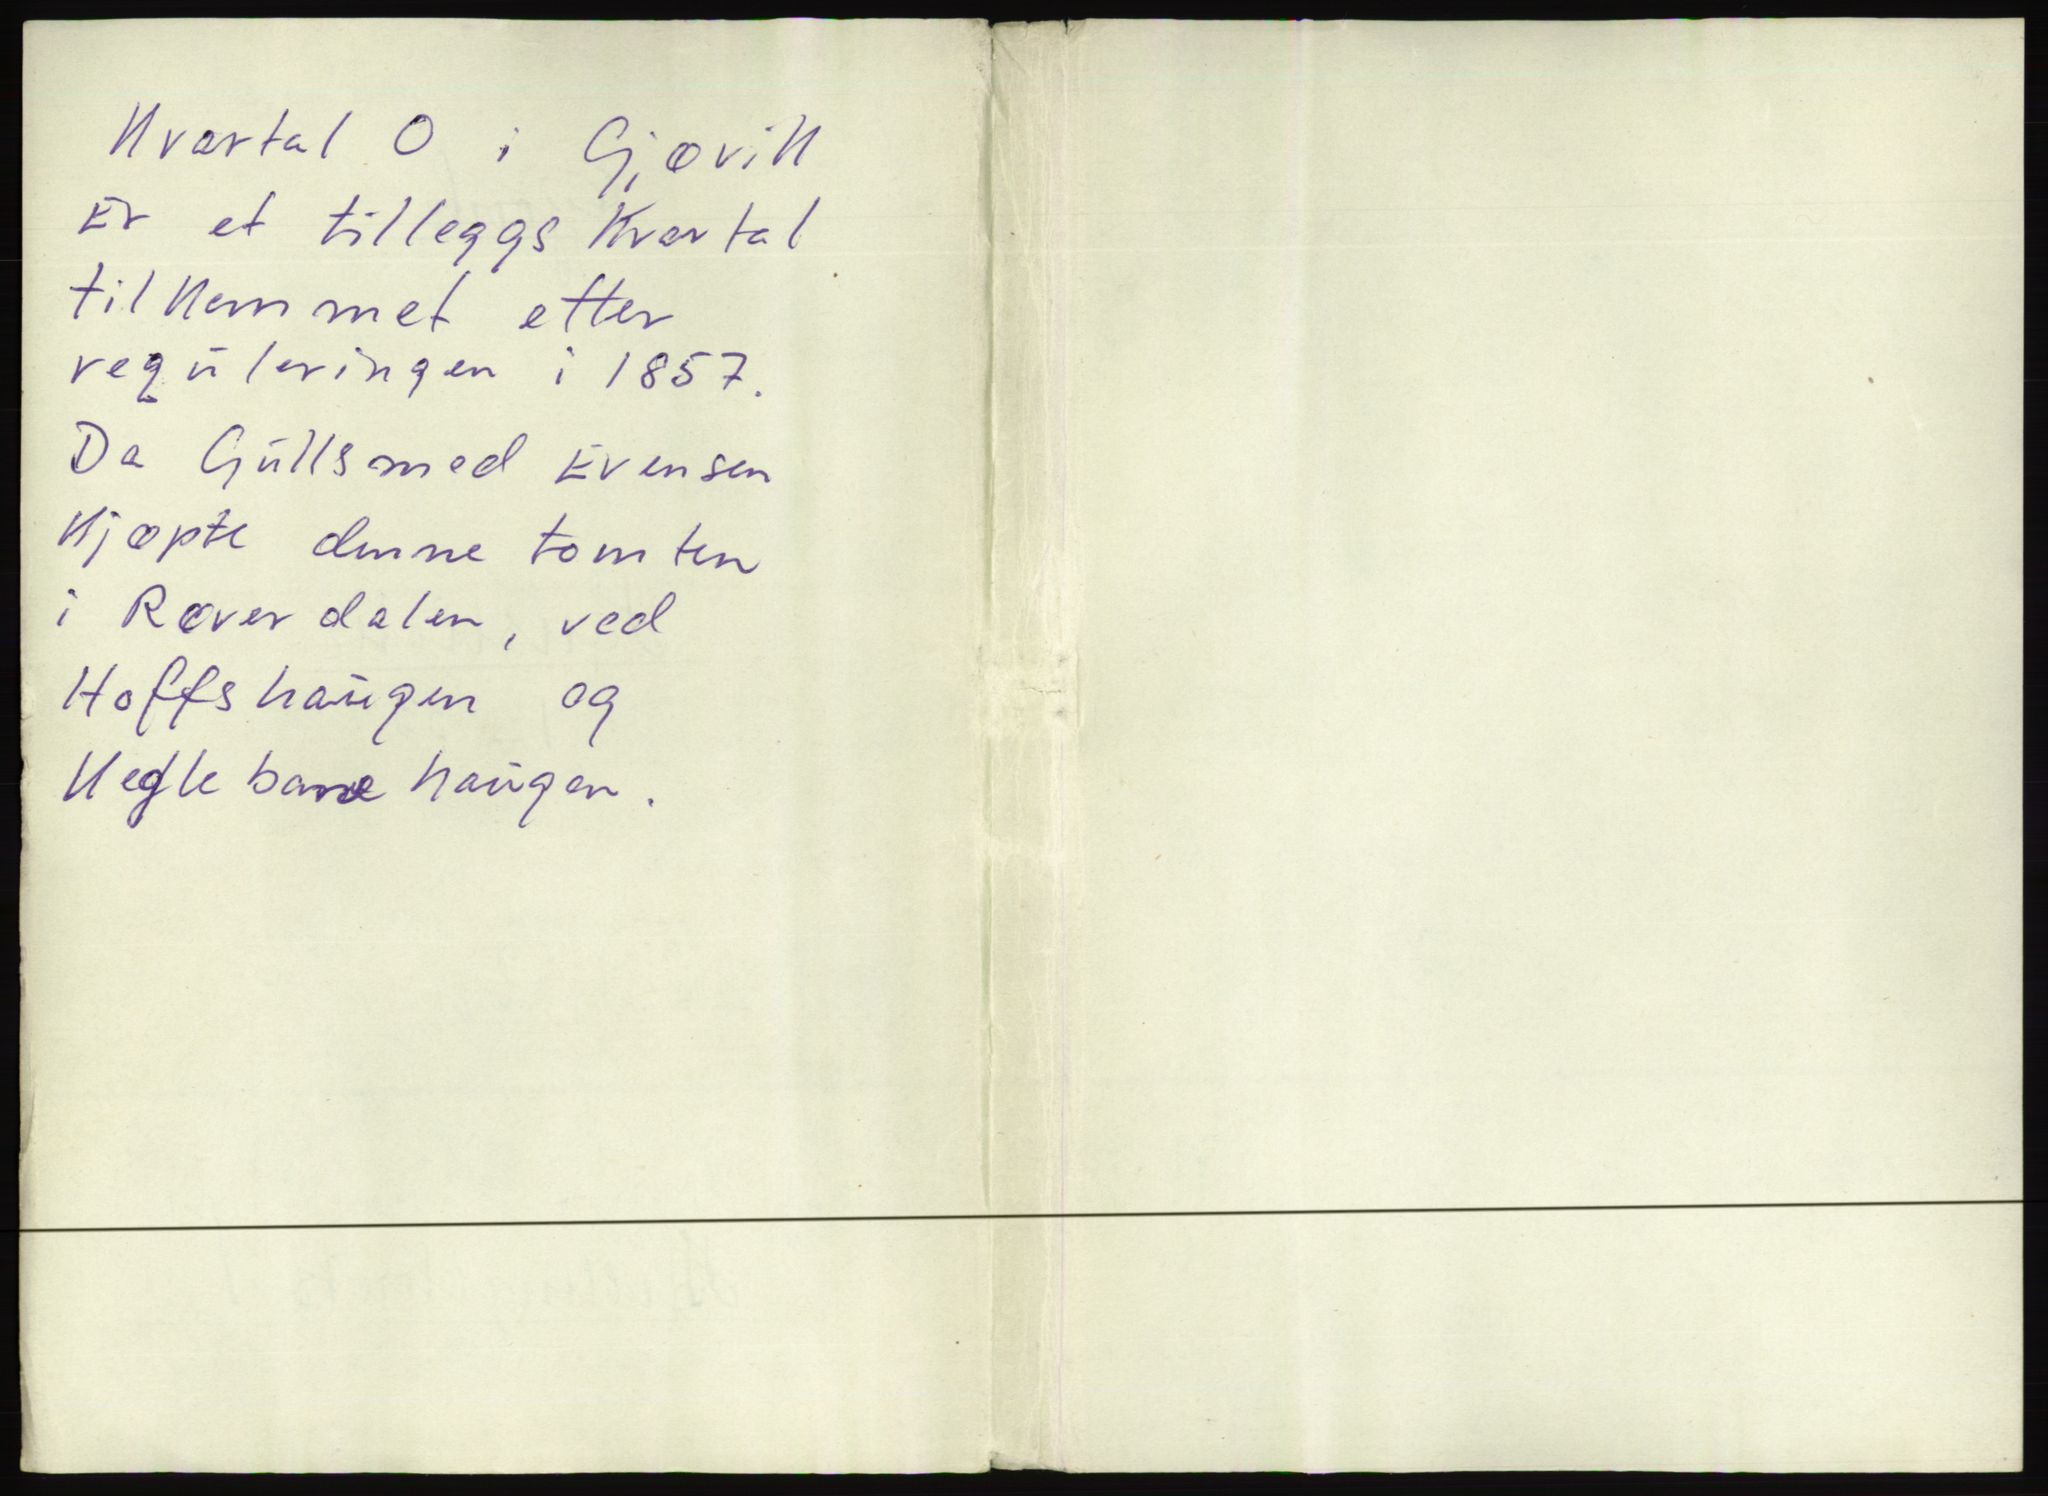 Kvartal O i Gjøvik
Er et tilleggs Kvartal
tilkommet etter
reguleringen i 1857.
Da Gullsmed Evensen
Kjøpte denne tomten
i Røverdalen, ved
Hoffshaugen og
Keglebanehaugen.